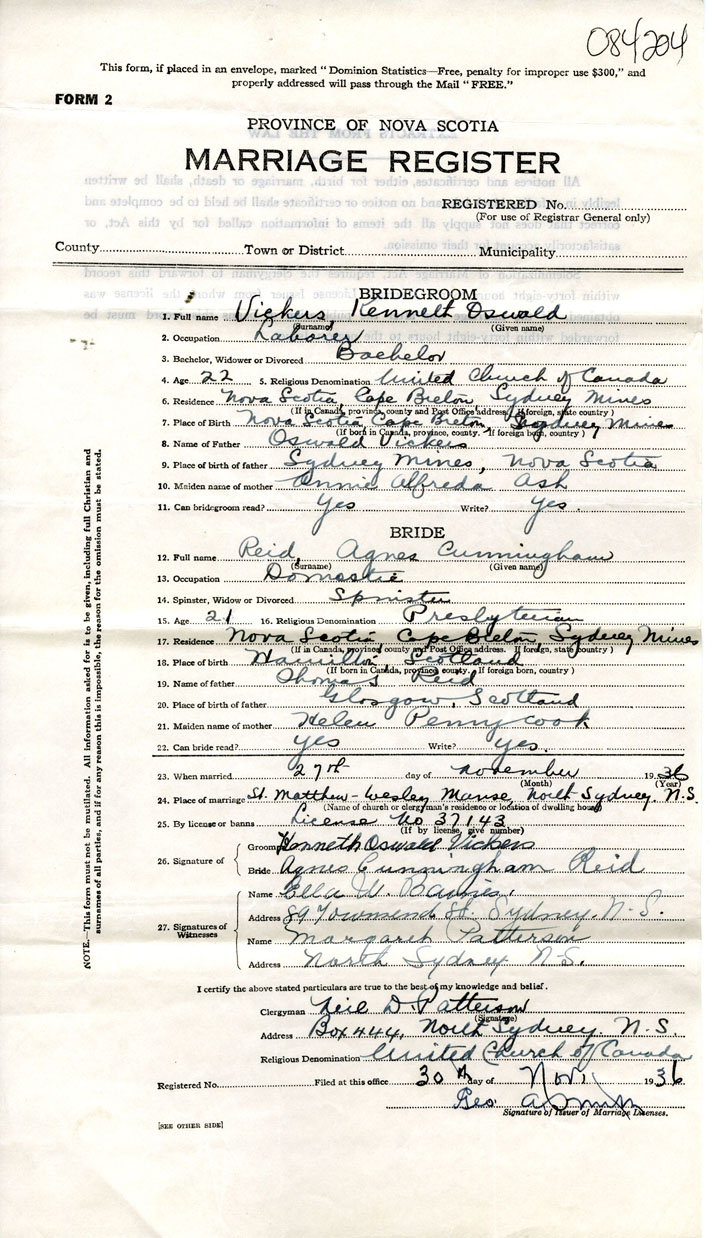 084204
This form, if placed in an envelope, marked "Dominion Statistics—Free, penalty for improper use $300," and
properly addressed will pass through the Mail "FREE."
FORM 2
PROVINCE OF NOVA SCOTIA
MARRIAGE REGISTER
REGISTERED No.
(For use of Registrar General only)
County Town or District Municipality
BRIDEGROOM
1. Full name Vickers, Kenneth Oswald
(Surname) (Given name)
2. Occupation Laborer
3. Bachelor, Widower or Divorced Bachelor
4. Age 22 5. Religious Denomination United Church of Canada
6. Residence Nova Scotia, Cape Breton, Sydney Mines
(If in Canada, province, county and Post Office address. If foreign, state country)
7. Place of Birth Nova Scotia, Cape Breton, Sydney Mines
(If born in Canada, province, county. If foreign born, country)
8. Name of Father Oswald Vickers
9. Place of birth of father Sydney Mines, Nova Scotia
10. Maiden name of mother Annie Alfreda Ash
11. Can bridegroom read? Yes Write? Yes.
BRIDE
12. Full name Reid, Agnes Cunningham
(Surname) (Given name)
13. Occupation Domestic
14. Spinster, Widow or Divorced Spinster
15. Age 21 16. Religious Denomination Presbyterian
17. Residence Nova Scotia Cape Breton, Sydney Mines
(If in Canada, province, county and Post Office address. If foreign, state country)
18. Place of birth Hamilton, Scotland
(If born in Canada, province, county. If foreign born, country)
19. Name of father Thomas Reid
20. Place of birth of father Glasgow, Scotland
21. Maiden name of mother Helen Pennycook
22. Can bride read? yes Write? yes.
23. When married 27th day of November 1936
(Month) (Year)
24. Place of marriage St. Matthew-Wesley Manse, North Sydney, N.S.
(Name of church or clergyman's residence or location of dwelling house)
25. By license or banns License No 37143
(If by license, give number)
26. Signature of
Groom Kenneth Oswald Vickers
Bride Agnes Cunningham Reid
27. Signatures of Witnesses
Name Ella W.
Address 89 Townsend St. Sydney. N.S.
Name Margaret Patterson
Address North Sydney N.S.
I certify the above stated particulars are true to the best of my knowledge and belief.
Clergyman Neil D. Patterson
(Signature)
Address Box 444, North Sydney. N.S.
Religious Denomination United Church of Canada
Registered No. Filed at this office 30th day of Nov. 1936
Geo. A Smith
Signature of Issuer of Marriage Licenses.
[SEE OTHER SIDE]
NOTE.—This form must not be mutilated. All information asked for is to be given, including full Christian and
surnames of all parties, and if for any reason this is impossible, the reason for the omission must be stated.